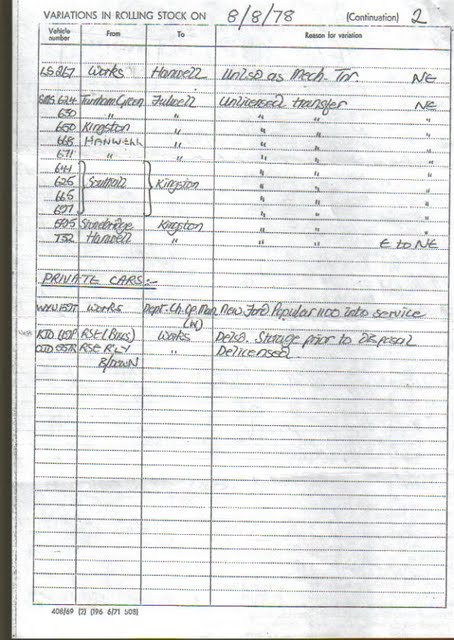 VARIATIONS IN ROLLING STOCK ON 8/8/78 (Continuation) 2
Vehicle number From To Reason for variation
Works Hanwell as Mech. Tnr. NE
SMS 624 Turnham Green Fulwell Unlicensed transfer NE
630 " " " " "
650 Kingston " " " "
668 HANWELL " " " "
671 " " " " "
644 " " "
625 Southall Kingston " " "
665 " " "
697 " " "
Stonebridge Kingston " " "
732 Hanwell " " " E to NE
PRIVATE CARS:-
Works Dept. Ch. Op. Man. New Ford Popular 1100 into service
(W)
RSE (Bus) Works Storage prior to Disposal
RSE RLY " Delicensed
B/DOWN
408/69 (2) (196 6/71 508)